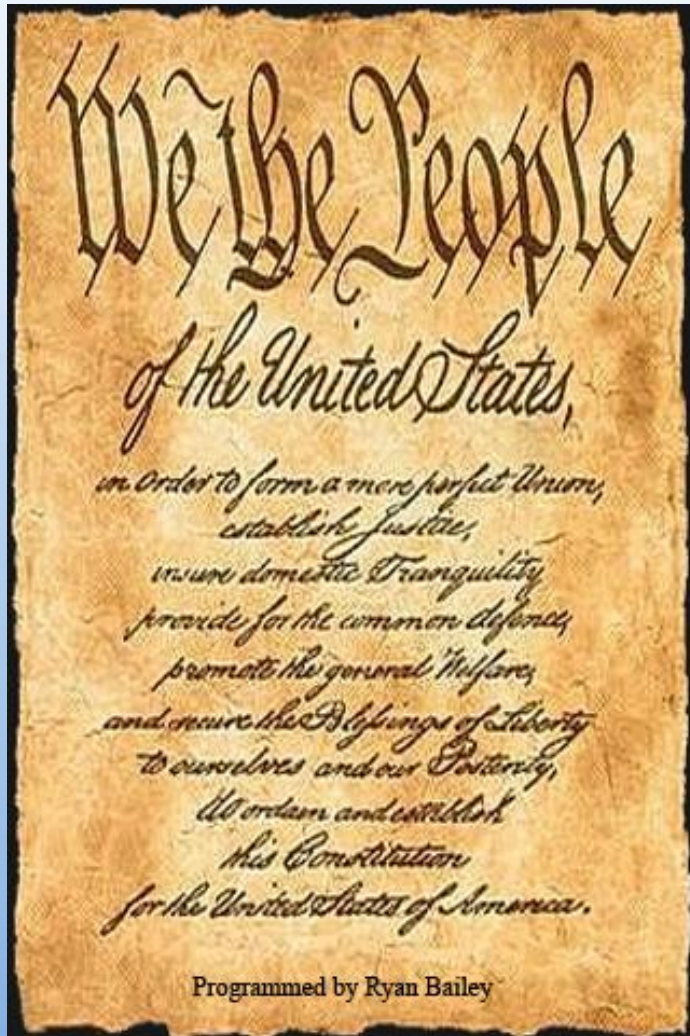 We the People
of the United States,
in Order to form a more perfect Union,
establish Justice,
insure domestic Tranquility
provide for the common defence,
promote the general Welfare,
and secure the Blessings of Liberty
to ourselves and our Posterity,
do ordain and establish
this Constitution
for the United States of America.
Programmed by Ryan Bailey